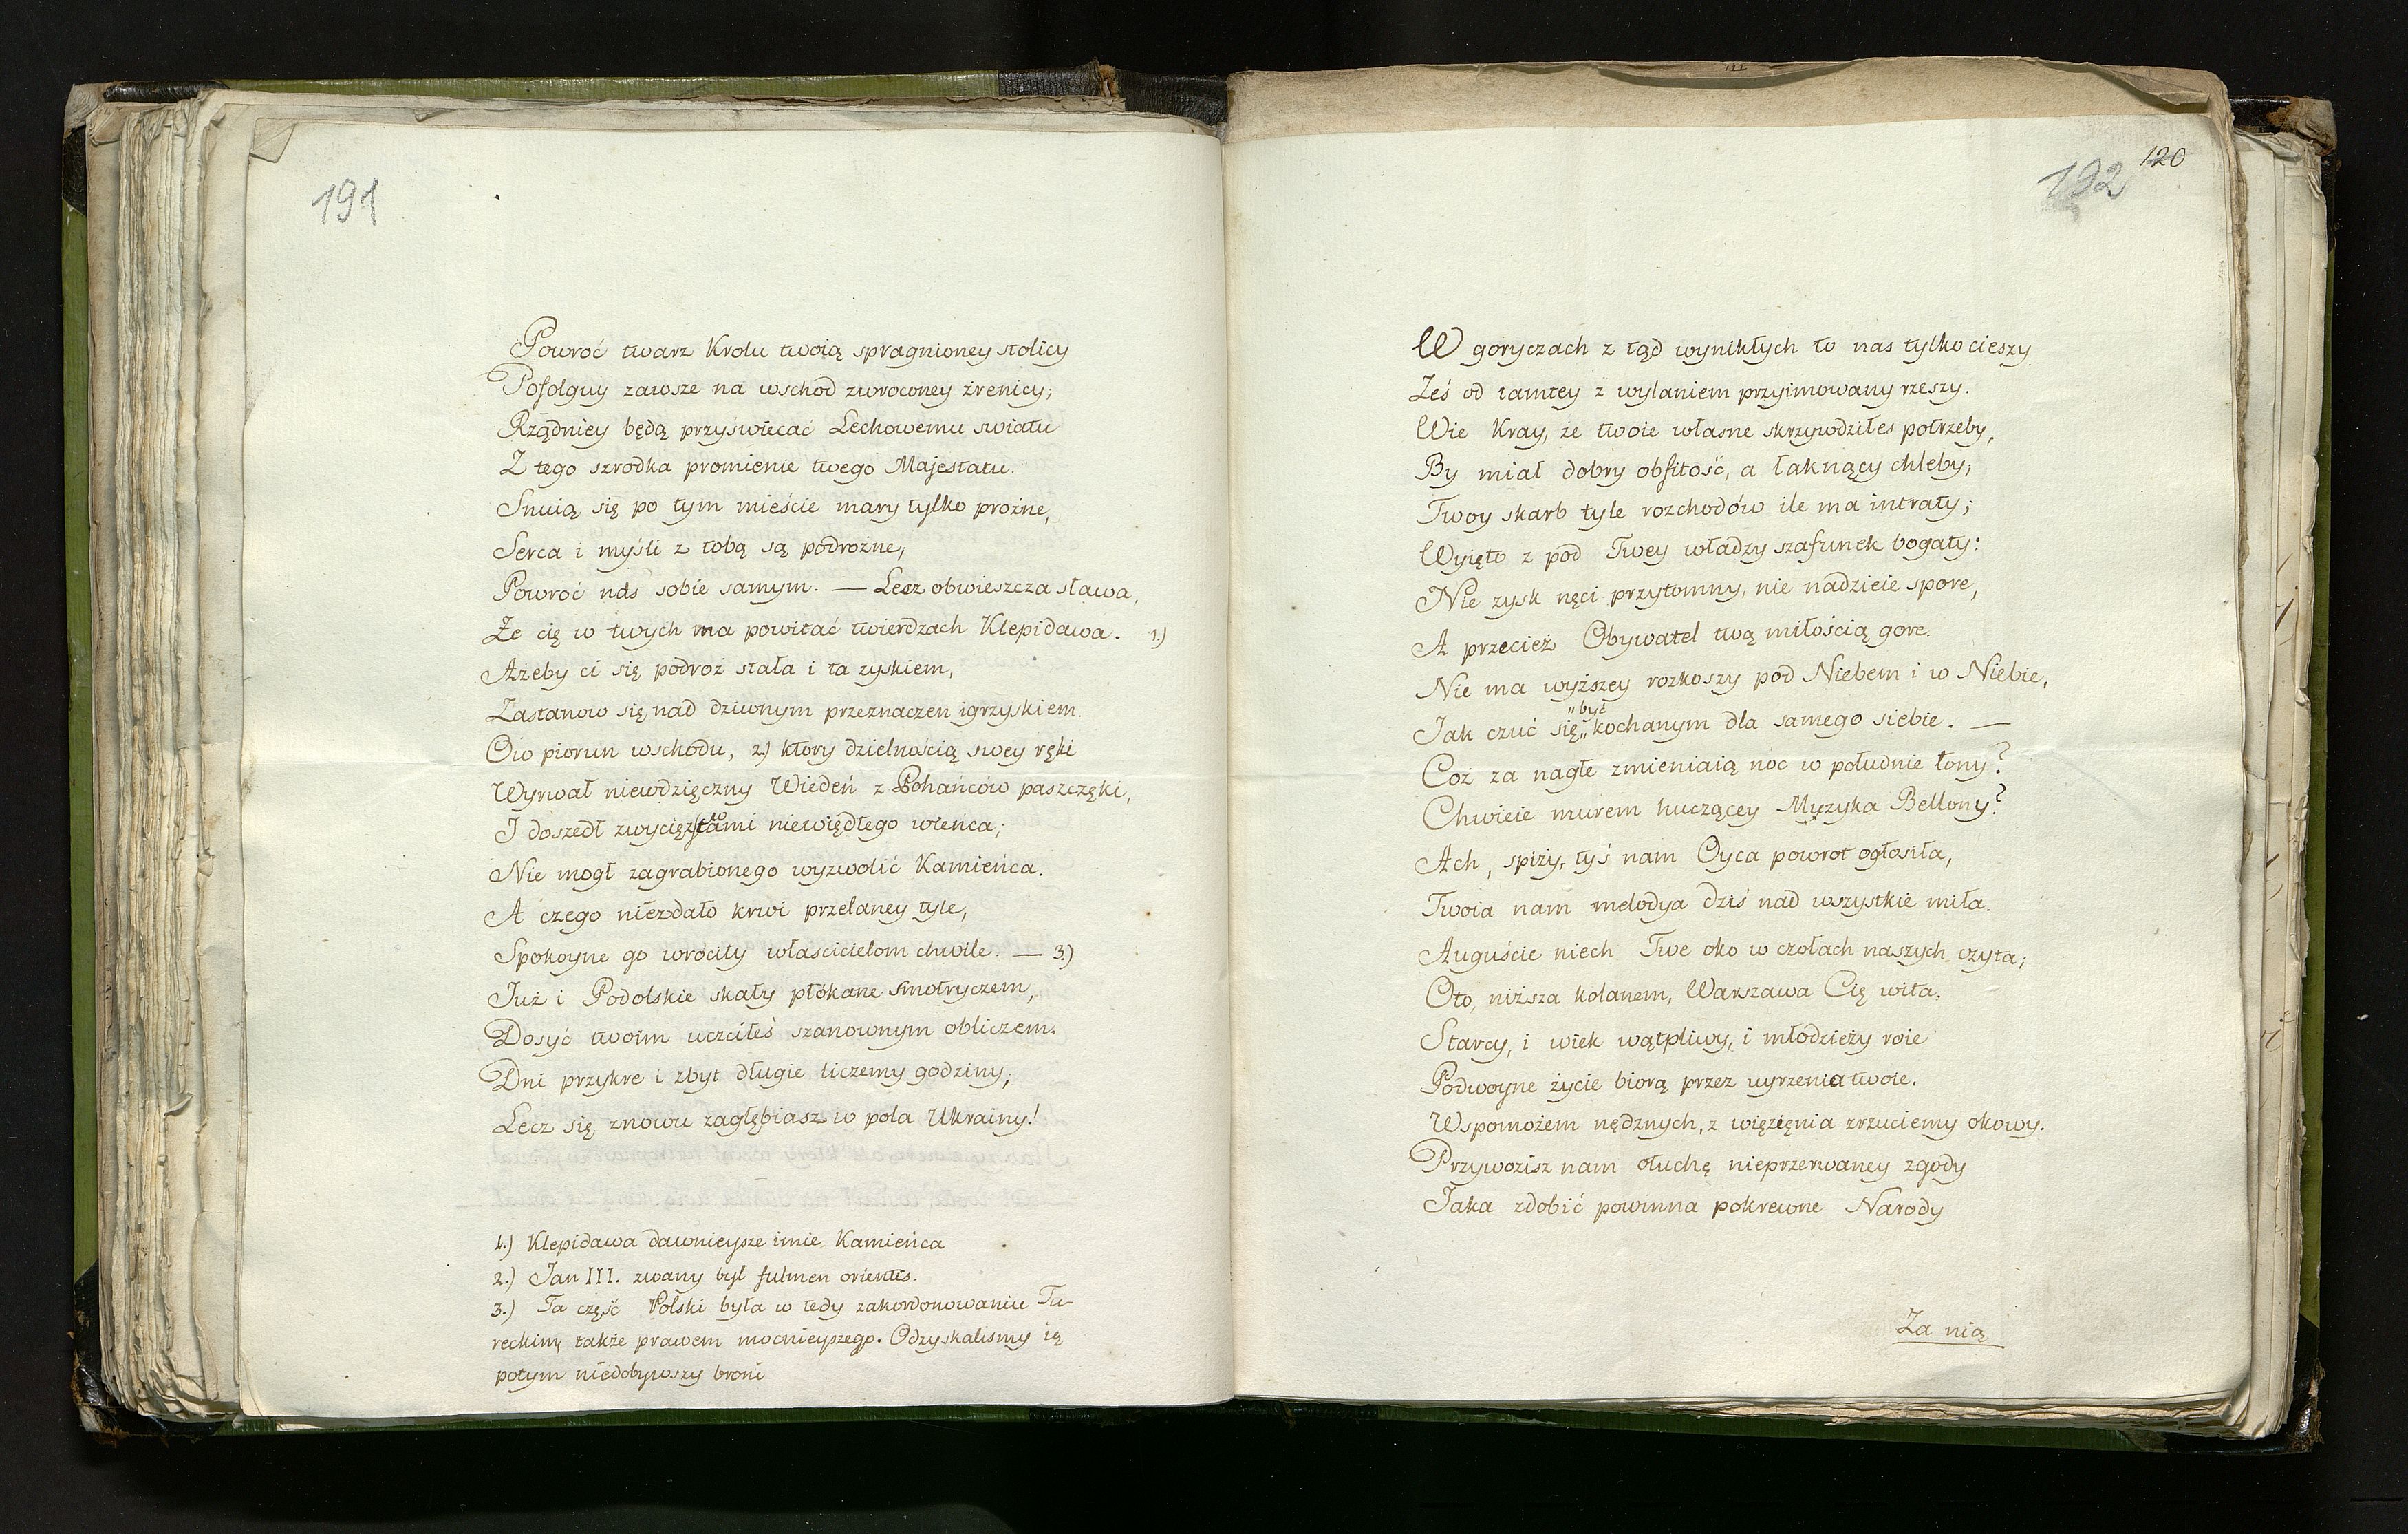 191
Powroć twarz Krolu twoią spragnioney stolicy
Pofolguy zawsze na wschod zwroconey źrenicy;
Rządniey będą przyświecać Lechowemu swiatu
Z tego szrodka promienie twego Majestatu.
Snuią się po tym mieście mary tylko prożne,
Serca i myśli z tobą są podrożne,
Powroć nas sobie samym. — Lecz obwieszcza sława,
Ze cię w twych ma powitać twierdzach Klepidawa. 1.)
Ażeby ci się podroż stała i ta zyskiem,
Zastanow się nad dziwnym przeznaczen igrzyskiem.
Ow piorun wschodu, 2) ktory dzielnością swey ręki
Wyrwał niewdzięczny Wiedeń z Pohańców paszczęki,
I doszedł zwycięztwami niewiędłego wieńca;
Nie mogł zagrabionego wyzwolić Kamieńca.
A czego niezdało krwi przelaney tyle,
Spokoyne go wrociły włascicielom chwile. — 3.)
Już i Podolskie skały płókane Smotryczem,
Dosyć twoim uczciłeś szanownym obliczem.
Dni przykre i zbyt długie liczemy godziny;
Lecz się znowu zagłębiasz w pola Ukrainy!
1.) Klepidawa dawnieysze imie Kamieńca
2.) Jan III. zwany był fulmen orientis.
3.) Ta część Polski była w tedy zakordonowaniu Tu-
reckim także prawem mocnieyszego. Odzyskalismy ią
potym niedobywszy broni
120
192
W goryczach z tąd wynikłych to nas tylko cieszy
Żeś od tamtey z wylaniem przyimowany rzeszy.
Wie Kray, że twoie własne skrzywdziłes potrzeby,
By miał dobry obfitość, a łaknący chleby;
Twoy skarb tyle rozchodów ile ma intraty;
Wyięto z pod Twey władzy szafunek bogaty:
Nie zysk nęci przytomny, nie nadzieie spore,
A przecież Obywatel twą miłością gore.
Nie ma wyższey rozkoszy pod Niebem i w Niebie,
Jak czuć się „być„ kochanym dla samego siebie. —
Coż za nagłe zmieniaią noc w południe łony?
Chwieie murem huczącey Muzyka Bellony?
Ach, spiży, tyś nam Oyca powrot ogłosiła,
Twoia nam melodya dziś nad wszystkie miła.
Auguście niech Twe oko w czołach naszych czyta;
Oto, niższa kolanem, Warszawa Cię wita.
Starcy, i wiek wątpliwy, i młodzieży roie
Podwoyne życie biorą przez uyrzenia twoie.
Wspomożem nędznych, z więzięnia zrzuciemy okowy.
Przywozisz nam otuchę nieprzerwaney zgody
Jaka zdobić powinna pokrewne Narody
Za nią